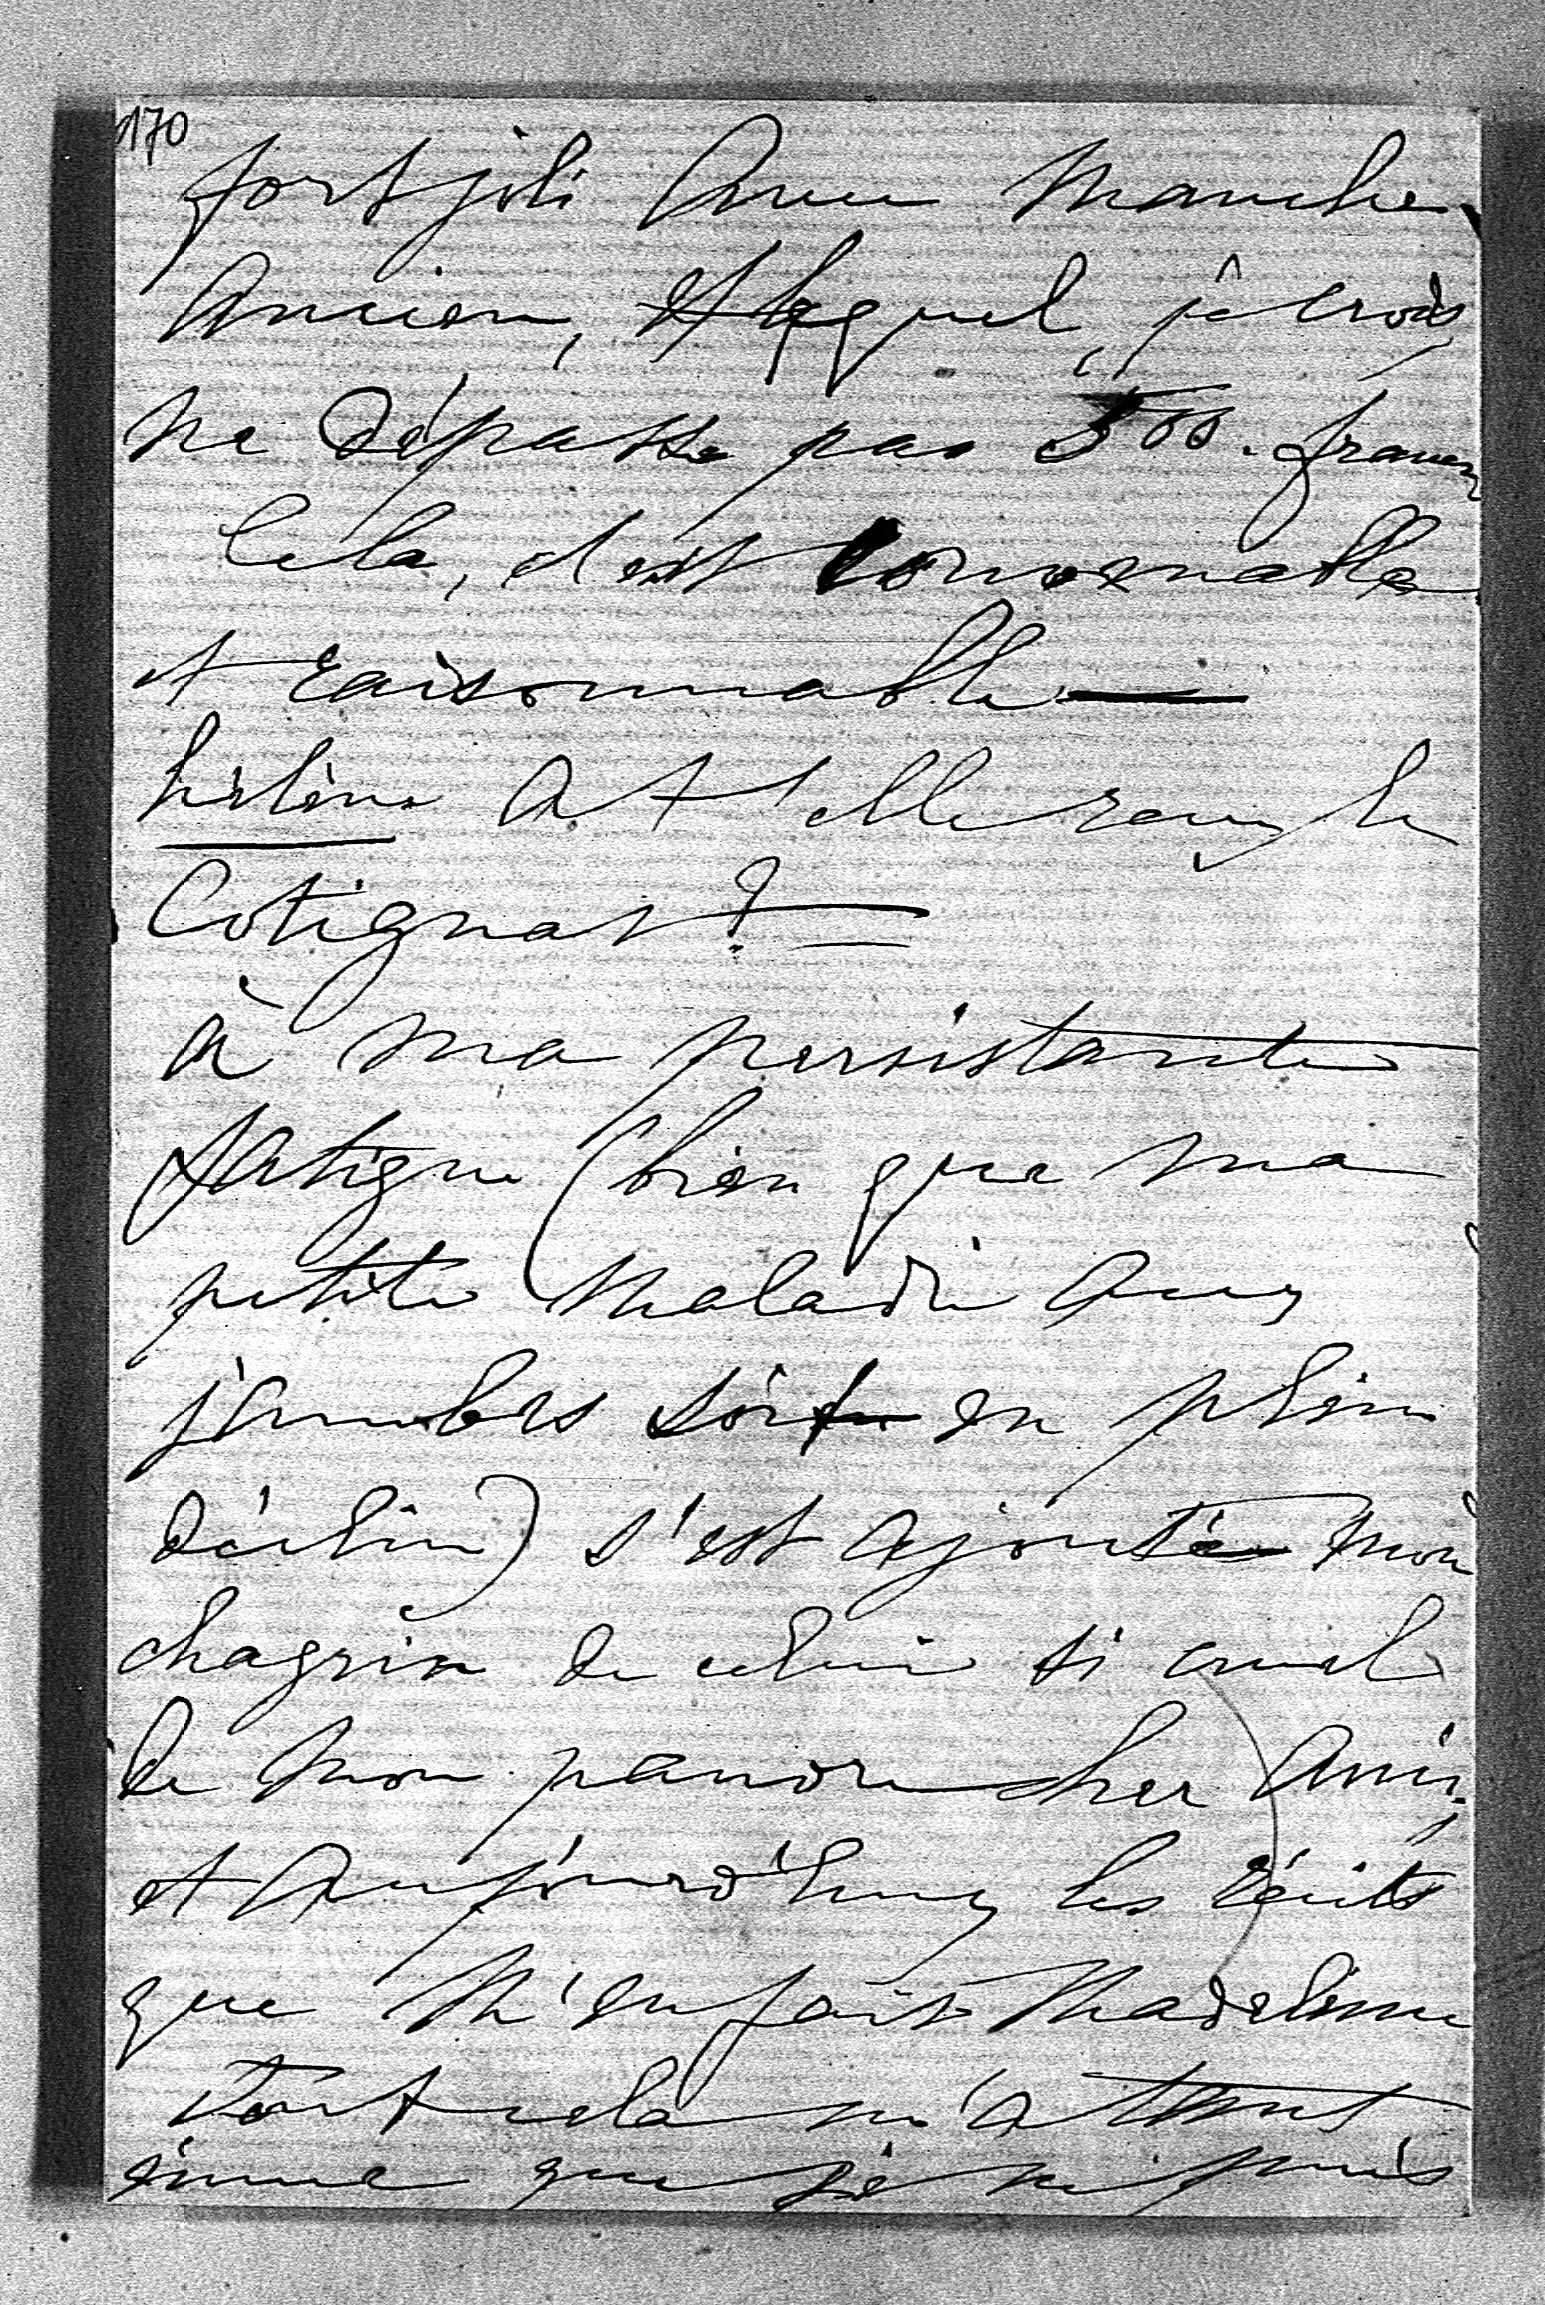 170
fort joli avec manche
ancien, et lequel, je crois,
ne dépasse pas 500. francs
cela, c'est convenable
et raisonnable —
hélène a t elle reçu le
Cotignat? —
à ma persistante
fatigue (bien que ma
petite maladie aux
jambes soit en plein
déclin) s'est ajouté mon
chagrin de celui si cruel
de mon pauvre cher ami;
et aujourd'huy les récits
que m'en fait Madeleine
Tout cela m'a tant
émue que je ne puis